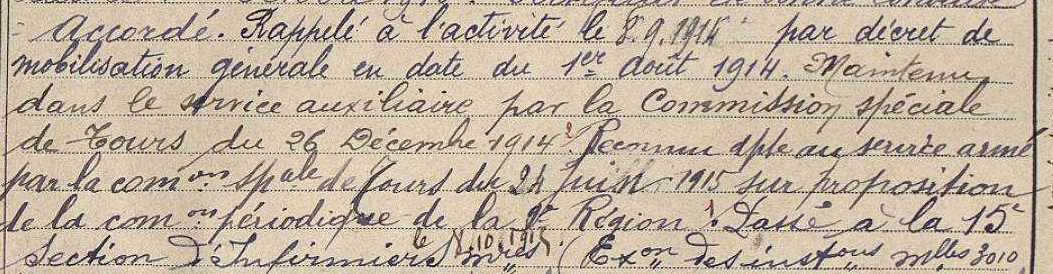 accordé. Rappelé à l'activité le 8.9.1914 par décret de
mobilisation générale en date du 1er août 1914. Maintenu
dans le service auxiliaire par la Commission spéciale
de Tours du 26 Décembre 1914. Reconnu apte au service armé
par la comon spale de Tours du 24 juin 1915 sur proposition
de la comon périodique de la Région. Passé à la 15e
Section d'Infirmiers mres le 8.10.1915. (Exon des instons mlles 3010